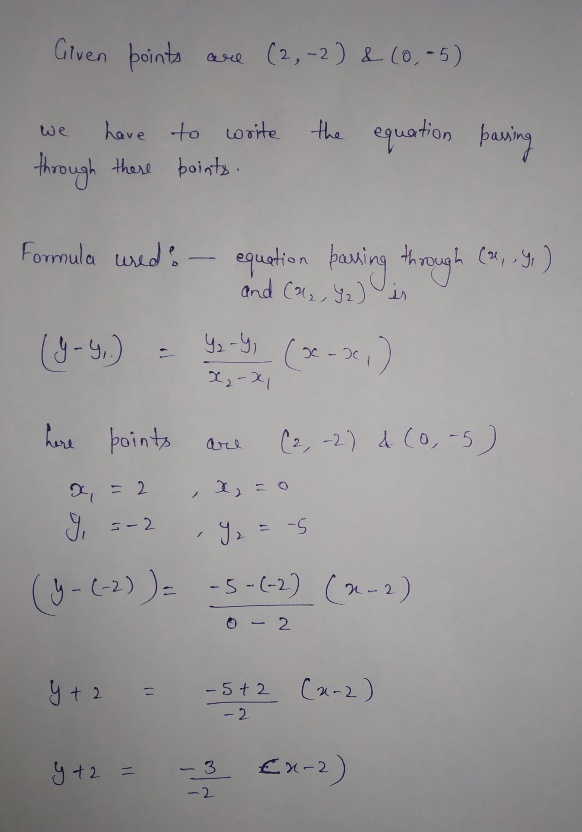 Given points are (2, -2) & (0, -5)
we have to write the equation passing
through these points.
Formula used :— equation passing through (x₁, y₁)
and (x₂, y₂) is
(y-y₁) = y₂-y₁/x₂-x₁ (x-x₁)
here points are (2, -2) & (0, -5)
x₁ = 2 , x₂ = 0
y₁ = -2 , y₂ = -5
(y-(-2)) = -5-(-2)/0-2 (x-2)
y+2 = -5+2/-2 (x-2)
y+2 = -3/-2 (x-2)